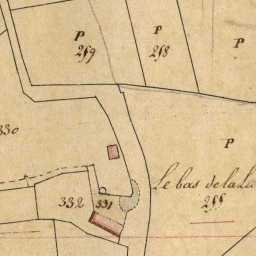 P
P
P
259
258
330
P
Le bas de la La
255
332
331